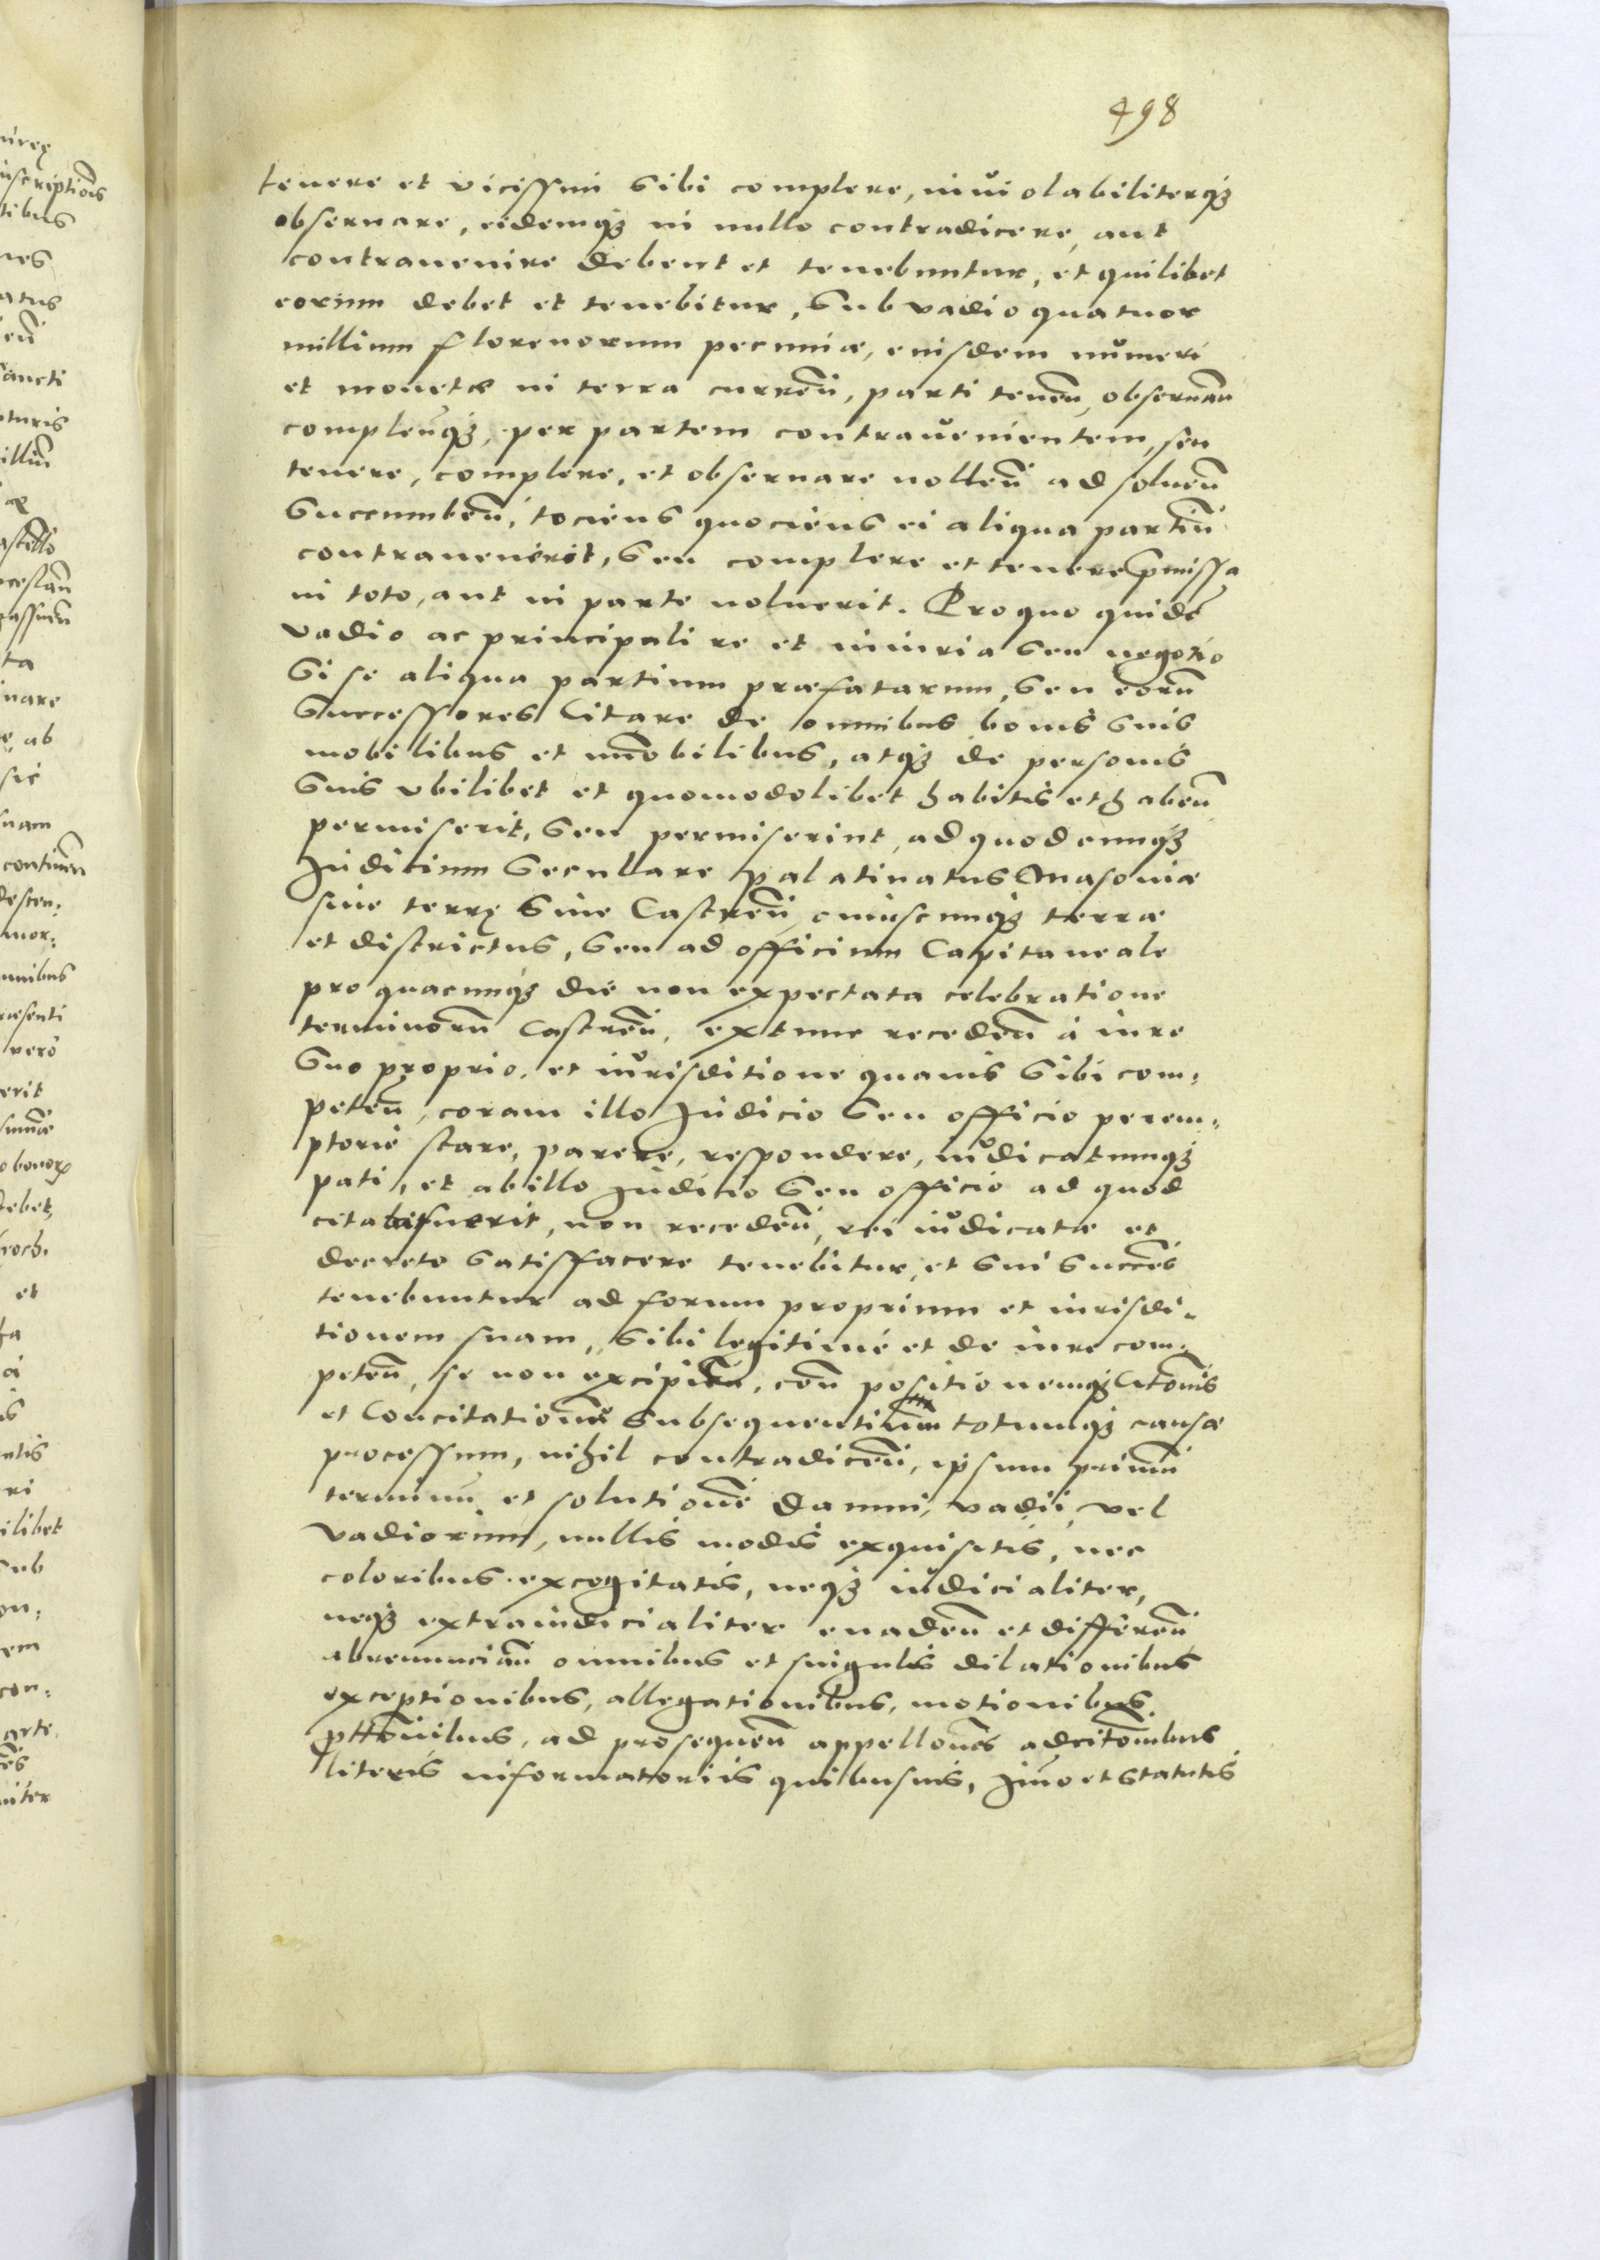 498
tenere et vicissim sibi complere, inviolabiliterq̃
obseruare, eidemq̃ in nullo contradicere, aut
contrauenire debent et tenebuntur, et quilibet
eorum debet et tenebitur, sub vadio quatuor
millium florenorum pecuniæ, eiusdem numeri
et monetæ in terra curreñ, parti teneñ, obseruañ
compleñq̃, per partem contrauenientem, seu
tenere, complere, et obseruare nolleñ ad solueñ
succumbeñ, tociens quociens ei aliqua partiũ
contrauenerit, seu complere et tenere p̃missa
in toto, aut in parte noluerit. Pro quo quidẽ
vadio ac principali re et iniuria seu negotio
si se aliqua partium præfatarum, seu eorũ
successores citare de omnibus bonis suis
mobilibus et im̃obilibus, atq̃ de personis
suis vbilibet et quomodolibet habitis et habeñ
permiserit, seu permiserint, ad quodcunq̃
Judicium seculare palatinatus Masoviæ
siue terrę siue Castreñ, cuiuscunq̃ terræ
et districtus, seu ad officium Capitaneale
pro quacunq̃ die non expectata celebratione
terminorũ Castreñ, extunc recedeñ à iure
suo proprio, et iurisditione quauis sibi com,
peteñ, coram illo Judicio seu officio perem,
ptoriè stare, parere, respondere, iudicatumq̃
pati, et ab illo Judicio seu officio ad quod
citat fuerit, non recedeñ, rei iudicatæ et
decreto satisfacere tenebitur, et sui succes̃
tenebuntur ad forum proprium et iurisdi,
tionem suam, sibi legitimè et de iure com,
peteñ, se non excipieñ, coñ positionemq̃ citõnis
et concitationũ subsequentium totumq̃ causæ
processum, nihil contradiceñ, ipsum primũ
terminũ et solutionẽ damni, vadii, vel
vadiorum, nullis modis exquisitis, nec
coloribus excogitatis, neq̃ iudicialiter,
neq̃ extraiudicialiter euadeñ et differeñ
abrenunciañ omnibus et singulis dilationibus
exceptionibus, allegationibus, motionibus,
ad prosequeñ appellones̃ adcitõnibus
literis informatoriis quibusuis, Imo et statutis